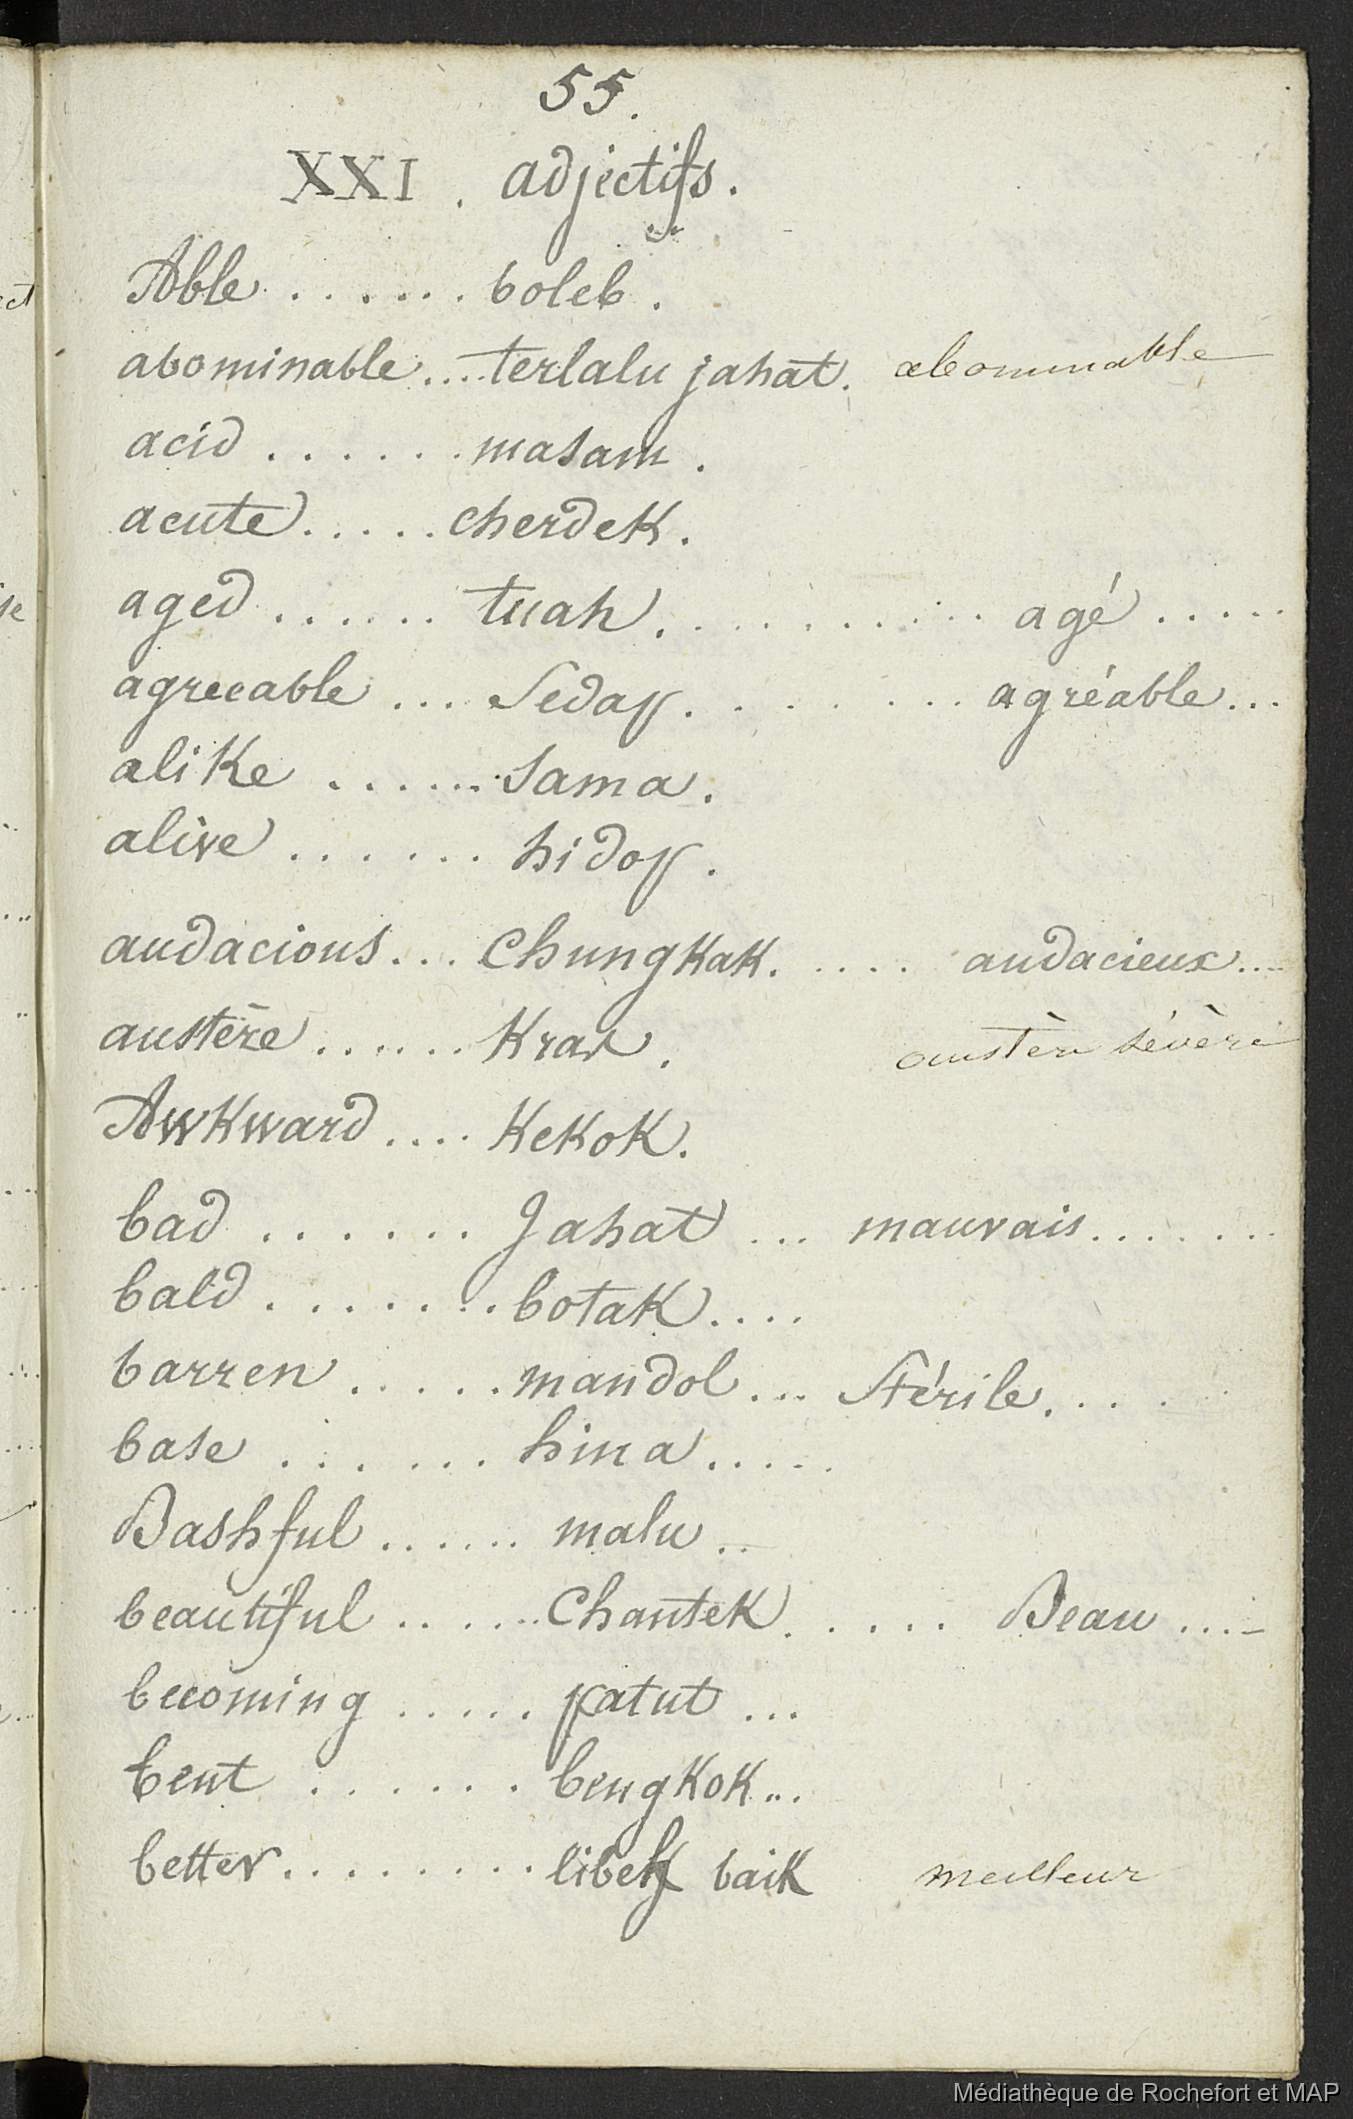 55.
XXI. adjectifs.
Able . . . . . . boleb.
abominable.... terlalu jahat. abominable
acid . . . . . . masam.
acute . . . . . cherdek.
aged . . . . . . tuah. . . . . . . . . . agé . . . . .
agreeable ... Sedap. . . . . . . . agréable ...
alike . . . . . . Sama.
alive . . . . . . hidop.
audacious ... Chungkak. . . . . audacieux....
austère . . . . . . Kras. austère sévère
Awkward .... Kekok.
bad . . . . . . Jahat ... mauvais. . . . . . .
bald . . . . . . . botak ....
barren . . . . . mandol ... Stérile. . . .
base . . . . . . hina .....
Bashful . . . . . . malu ..
beautiful . . . . . . Chantek. . . . . Beau ....
becoming . . . . . patut ...
bent . . . . . . bengkok...
better. . . . . . . . baik meilleur
Médiathèque de Rochefort et MAP